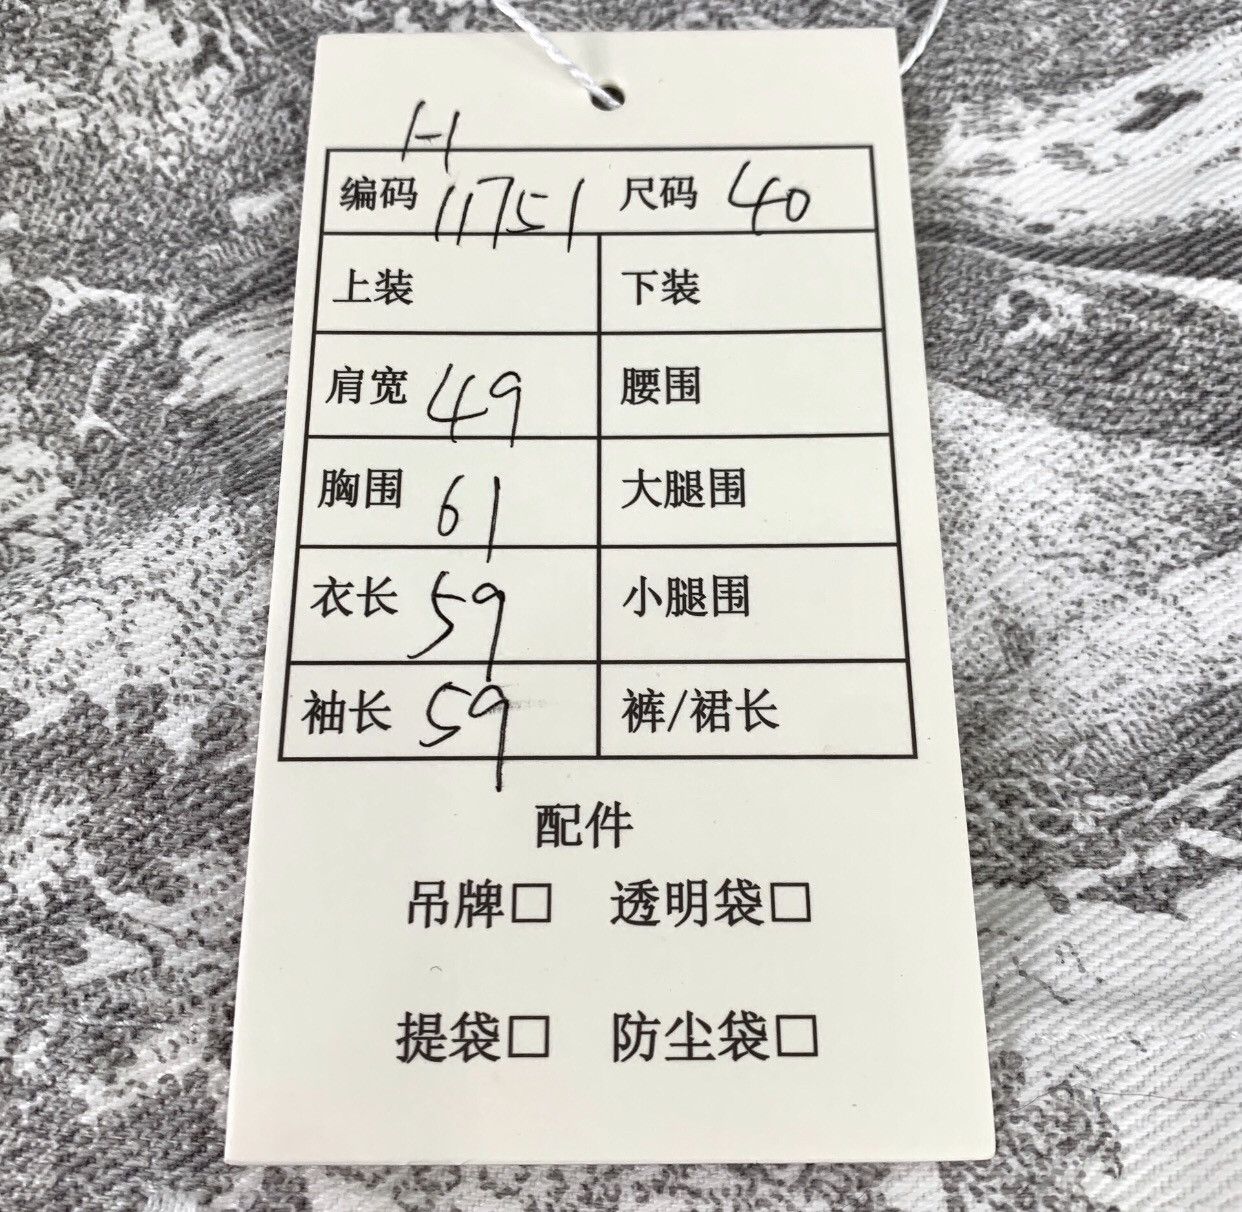 H
编码 11751 尺码 40
上装 下装
肩宽 49 腰围
胸围 61 大腿围
衣长 59 小腿围
袖长 59 裤/裙长
配件
吊牌□ 透明袋□
提袋□ 防尘袋□